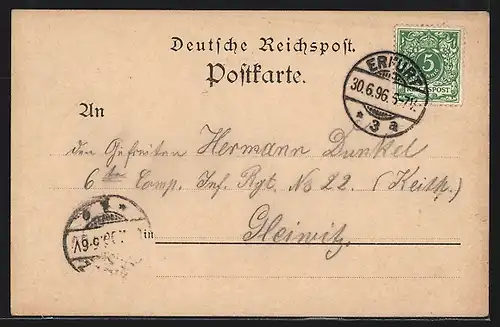 Deutsche Reichspost.
Postkarte.
5
POST
ERFURT
30.6.96. 5-7N.
* 3 a
An
den Gefreiten Hermann Dunkel
6te Comp. Inf. Rgt. No 22. (Keith.)
in Gleiwitz.